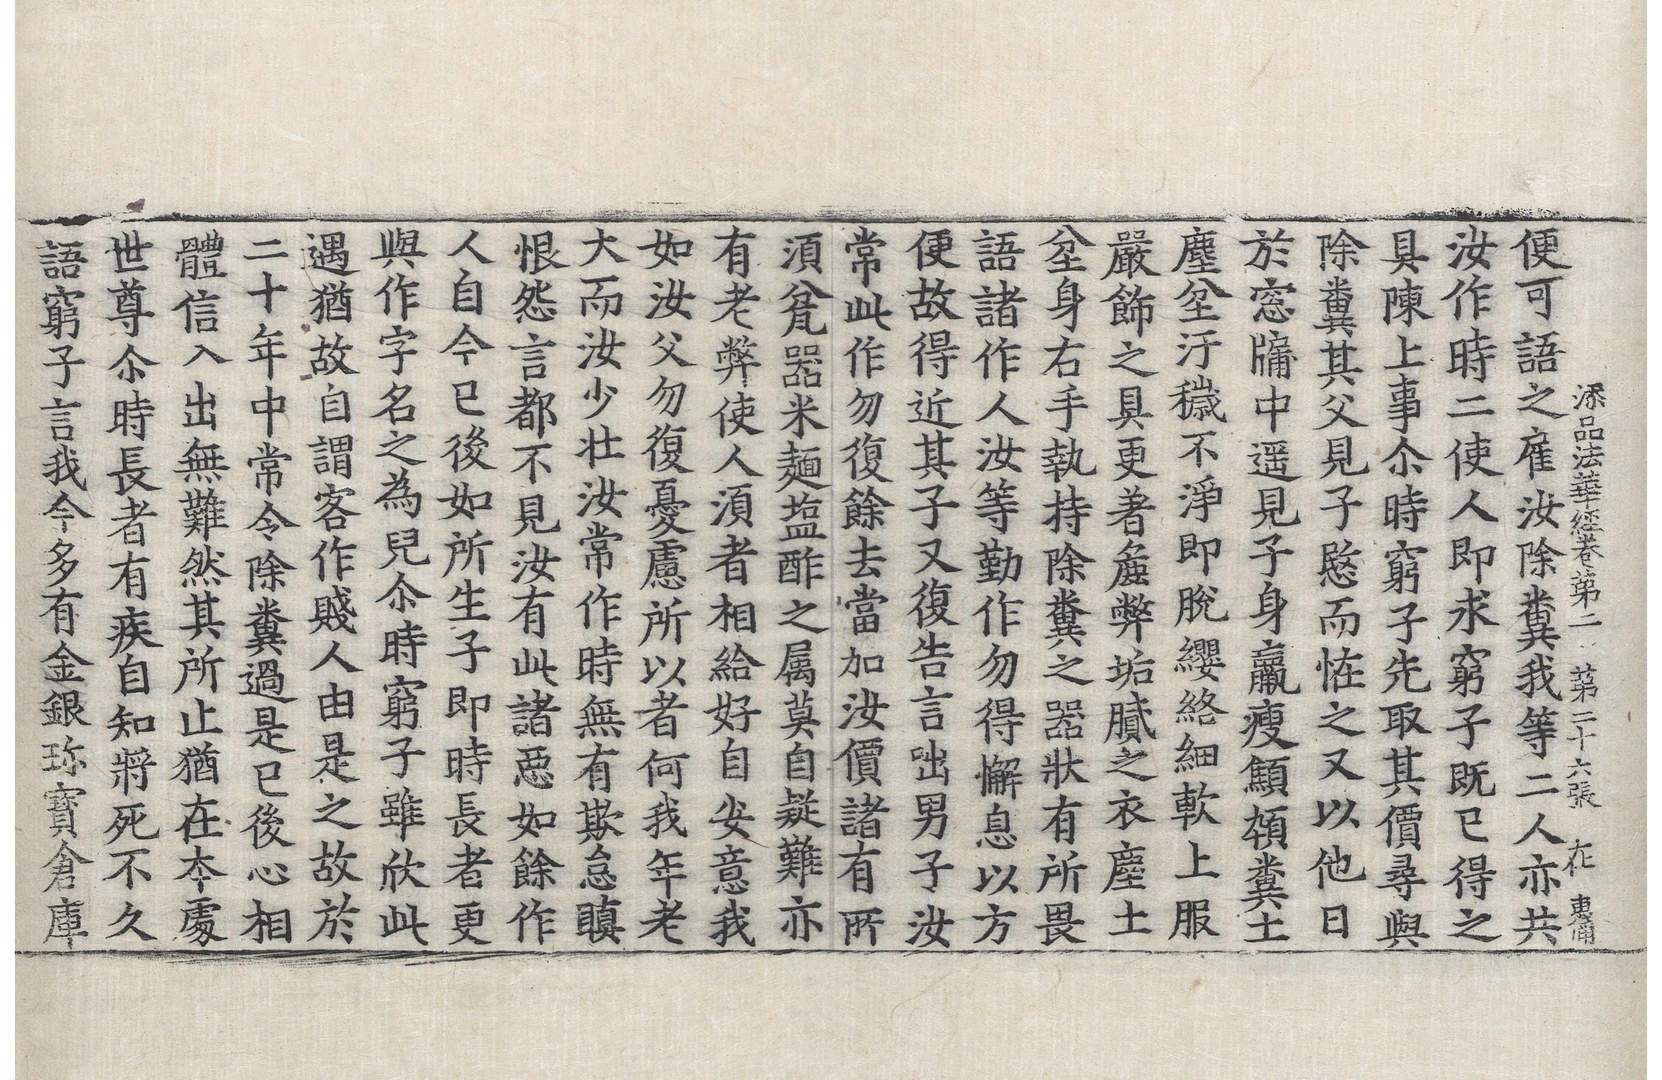 添品法華經卷第二　第二十六張　在　惠俌
便可語之雇汝除糞我等二人亦共
汝作時二使人即求窮子既已得之
具陳上事尒時窮子先取其價尋與
除糞其父見子愍而恠之又以他日
於窓牖中遥見子身羸瘦顦頓糞土
塵坌汙穢不淨即脫纓絡細軟上服
嚴飾之具更著麁弊垢膩之衣塵土
坌身右手執持除糞之器狀有所畏
語諸作人汝等勤作勿得懈息以方
便故得近其子又復告言咄男子汝
常此作勿復餘去當加汝價諸有所
湏瓫器米麺塩酢之属莫自疑難亦
有老弊使人湏者相給好自安意我
如汝父勿復憂慮所以者何我年老
大而汝少壮汝常作時無有欺怠瞋
恨怨言都不見汝有此諸惡如餘作
人自今已後如所生子即時長者更
與作字名之為兒尒時窮子雖欣此
遇猶故自謂客作賤人由是之故於
二十年中常令除糞過是已後心相
體信入出無難然其所止猶在夲處
世尊尒時長者有疾自知將死不久
語窮子言我今多有金銀珎寶倉庫